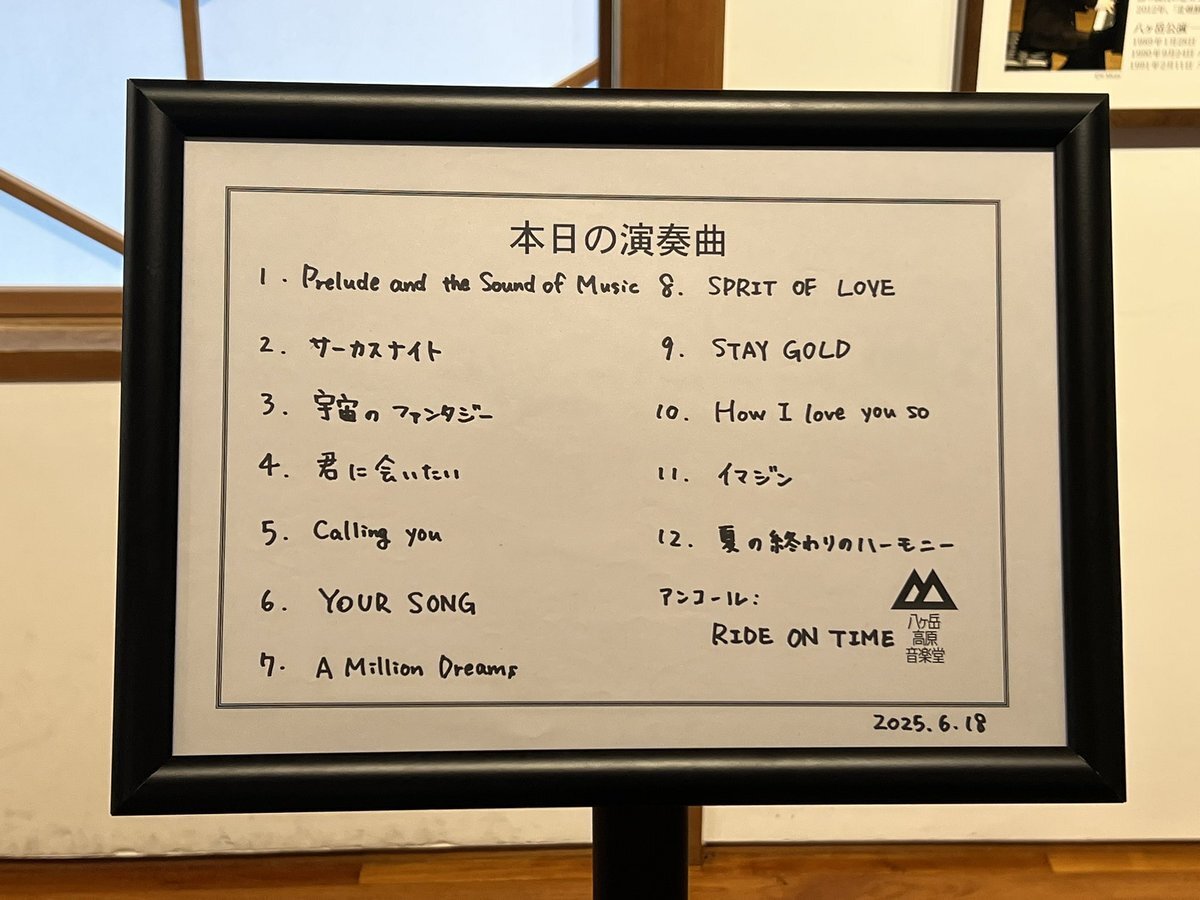 本日の演奏曲
1. Prelude and the Sound of Music
2. サーカスナイト
3. 宇宙のファンタジー
4. 君に会いたい
5. Calling you
6. YOUR SONG
7. A Million Dreams
8. SPRIT OF LOVE
9. STAY GOLD
10. How I love you so
11. イマジン
12. 夏の終わりのハーモニー
アンコール:
RIDE ON TIME
八ヶ岳
高原
音楽堂
2025.6.18
八ヶ岳公演